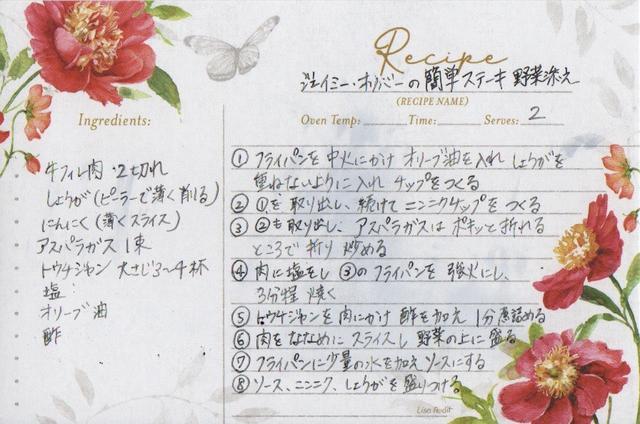 Recipe
ジェイミー・オリバーの簡単ステーキ 野菜添え
(RECIPE NAME)
Oven Temp: Time: Serves: 2
Ingredients:
牛フィレ肉・2切れ
しょうが(ピーラーで薄く削る)
にんにく(薄くスライス)
アスパラガス 1束
トウチジャン 大さじ3〜4杯
塩
オリーブ油
酢
① フライパンを中火にかけ オリーブ油を入れ しょうがを
重ねないように入れ チップをつくる
② ①を取り出し、続けて ニンニクチップをつくる
③ ②も取り出し、アスパラガスは ポキッと折れる
ところで折り 炒める
④ 肉に塩をし ③のフライパンを 強火にし、
3分程 焼く
⑤ トウチジャンを肉にかけ 酢を加え 1分煮詰める
⑥ 肉をななめにスライスし 野菜の上に盛る
⑦ フライパンに少量の水を加え ソースにする
⑧ ソース、ニンニク、しょうがを盛りつける
Lisa Audit